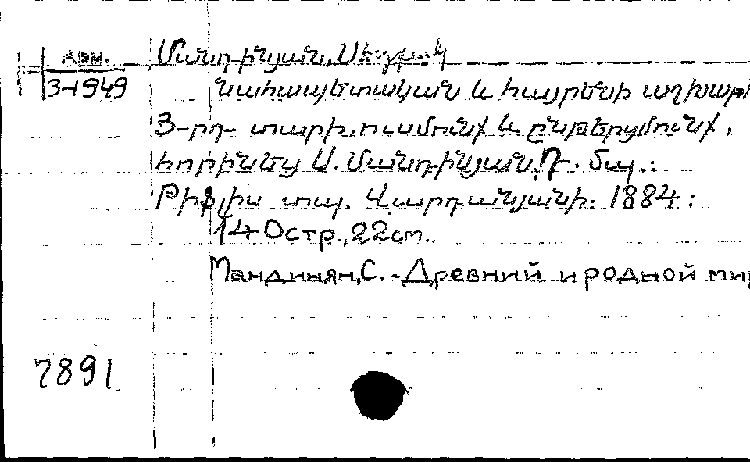 Арм.
3-1949
Մանդինյան, Սեդրակ
Նահապետական և հայրենի աշխարհ
3-րդ տարի, ուսմունք և ընթերցմունք,
հորինեց Ս. Մանդինյան, Դ. տպ.:
Թիֆլիս տպ. Վարդանյանի. 1884:
140 стр., 22 см.
Мандинян, С. - Древний и родной мир
7891